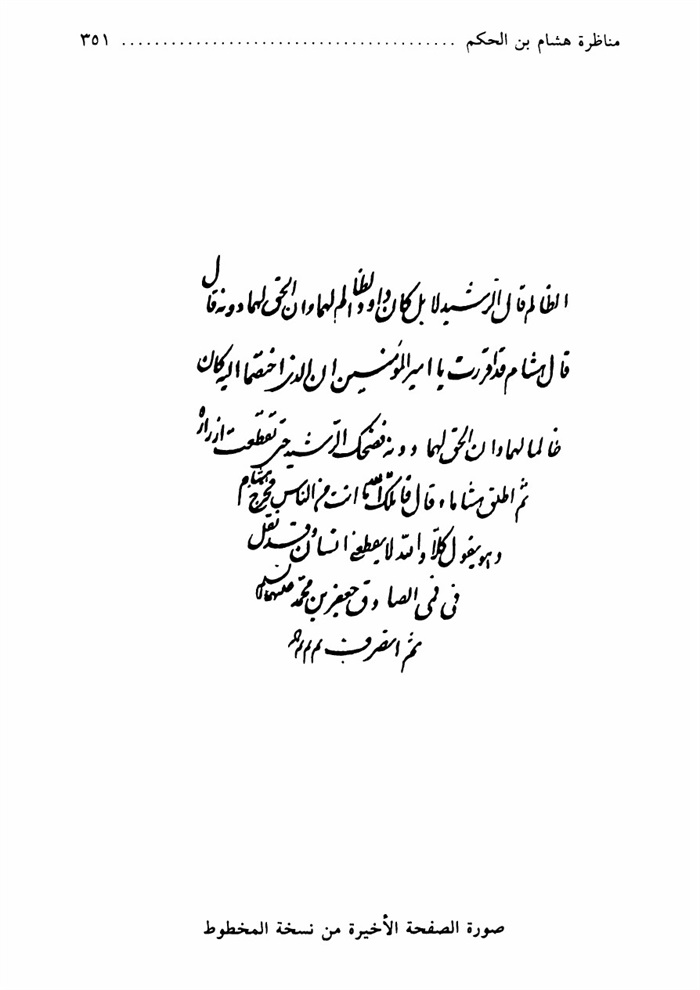 مناظرة هشام بن الحكم ........................................ ٣٥١
الظالم قال الرشيد لا بل كان داود الظالم لهما وان الحق لهما دونه قال
قال هشام قد اقررت يا امير المؤمنين ان الذى اختصما اليه كان
ظالما لهما وان الحق لهما دونه فضحك الرشيد حتى تقطعت ازراره
ثم اطلق هشاما وقال قاتلك الله انت من الناس فخرج هشام
وهو يقول كلا والله لا يقطعنى انسان وقد تفل
فى فمى الصادق جعفر بن محمد عليهما
ثم انصرف م م م
صورة الصفحة الأخيرة من نسخة المخطوط